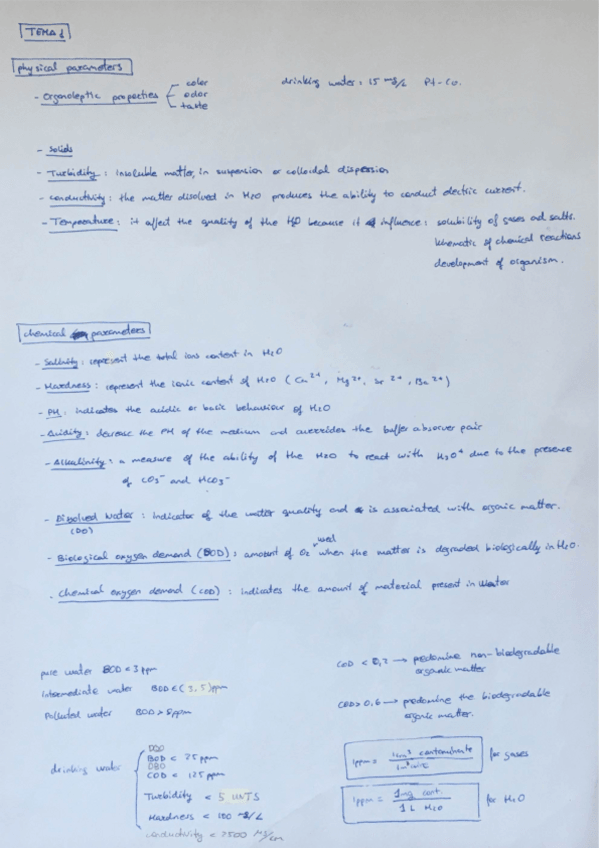 TEMA 1
physical parameters
- Organoleptic properties color
odor
taste
drinking water: 15 mg/L Pt-Co.
- Solids
- Turbidity: Insoluble matter, in suspension or colloidal dispersion
- Conductivity: the matter disolved in H2O produces the ability to conduct electric current.
- Temperature: it affect the quality of the H2O because it influence: solubility of gases and salts.
kinematic of chemical reactions
development of organism.
chemical parameters
- Salinity: represent the total ions content in H2O
- Hardness: represent the ionic content of H2O (Ca2+, Mg2+, Sr2+, Ba2+)
- PH: indicates the acidic or basic behaviour of H2O
- Acidity: decrease the PH of the medium and overrides the buffer absorver pair
- Alkalinity: a measure of the ability of the H2O to react with H3O+ due to the presence
of CO3- and HCO3-
- Dissolved Water: indicator of the water quality and is associated with organic matter.
(DO)
- Biological oxygen demand (BOD): amount of O2 used when the matter is degraded biologically in H2O.
- Chemical oxygen demand (COD): indicates the amount of material present in water
pure water BOD < 3 ppm
Intermediate water BOD ∈ (3,5) ppm
Polluted water BOD > 5 ppm
COD < 0,2 → predomine non-biodegradable
organic matter
COD > 0.6 → predomine the biodegradable
organic matter.
drinking water
BOD < 25 ppm
DBO
COD < 125 ppm
Turbidity < 5 UNTS
Hardness < 180 mg/L
Conductivity < 2500 MS/cm
1ppm = 1cm3 contaminate / 1m3 aire for gases
1ppm = 1mg cont. / 1L H2O for H2O